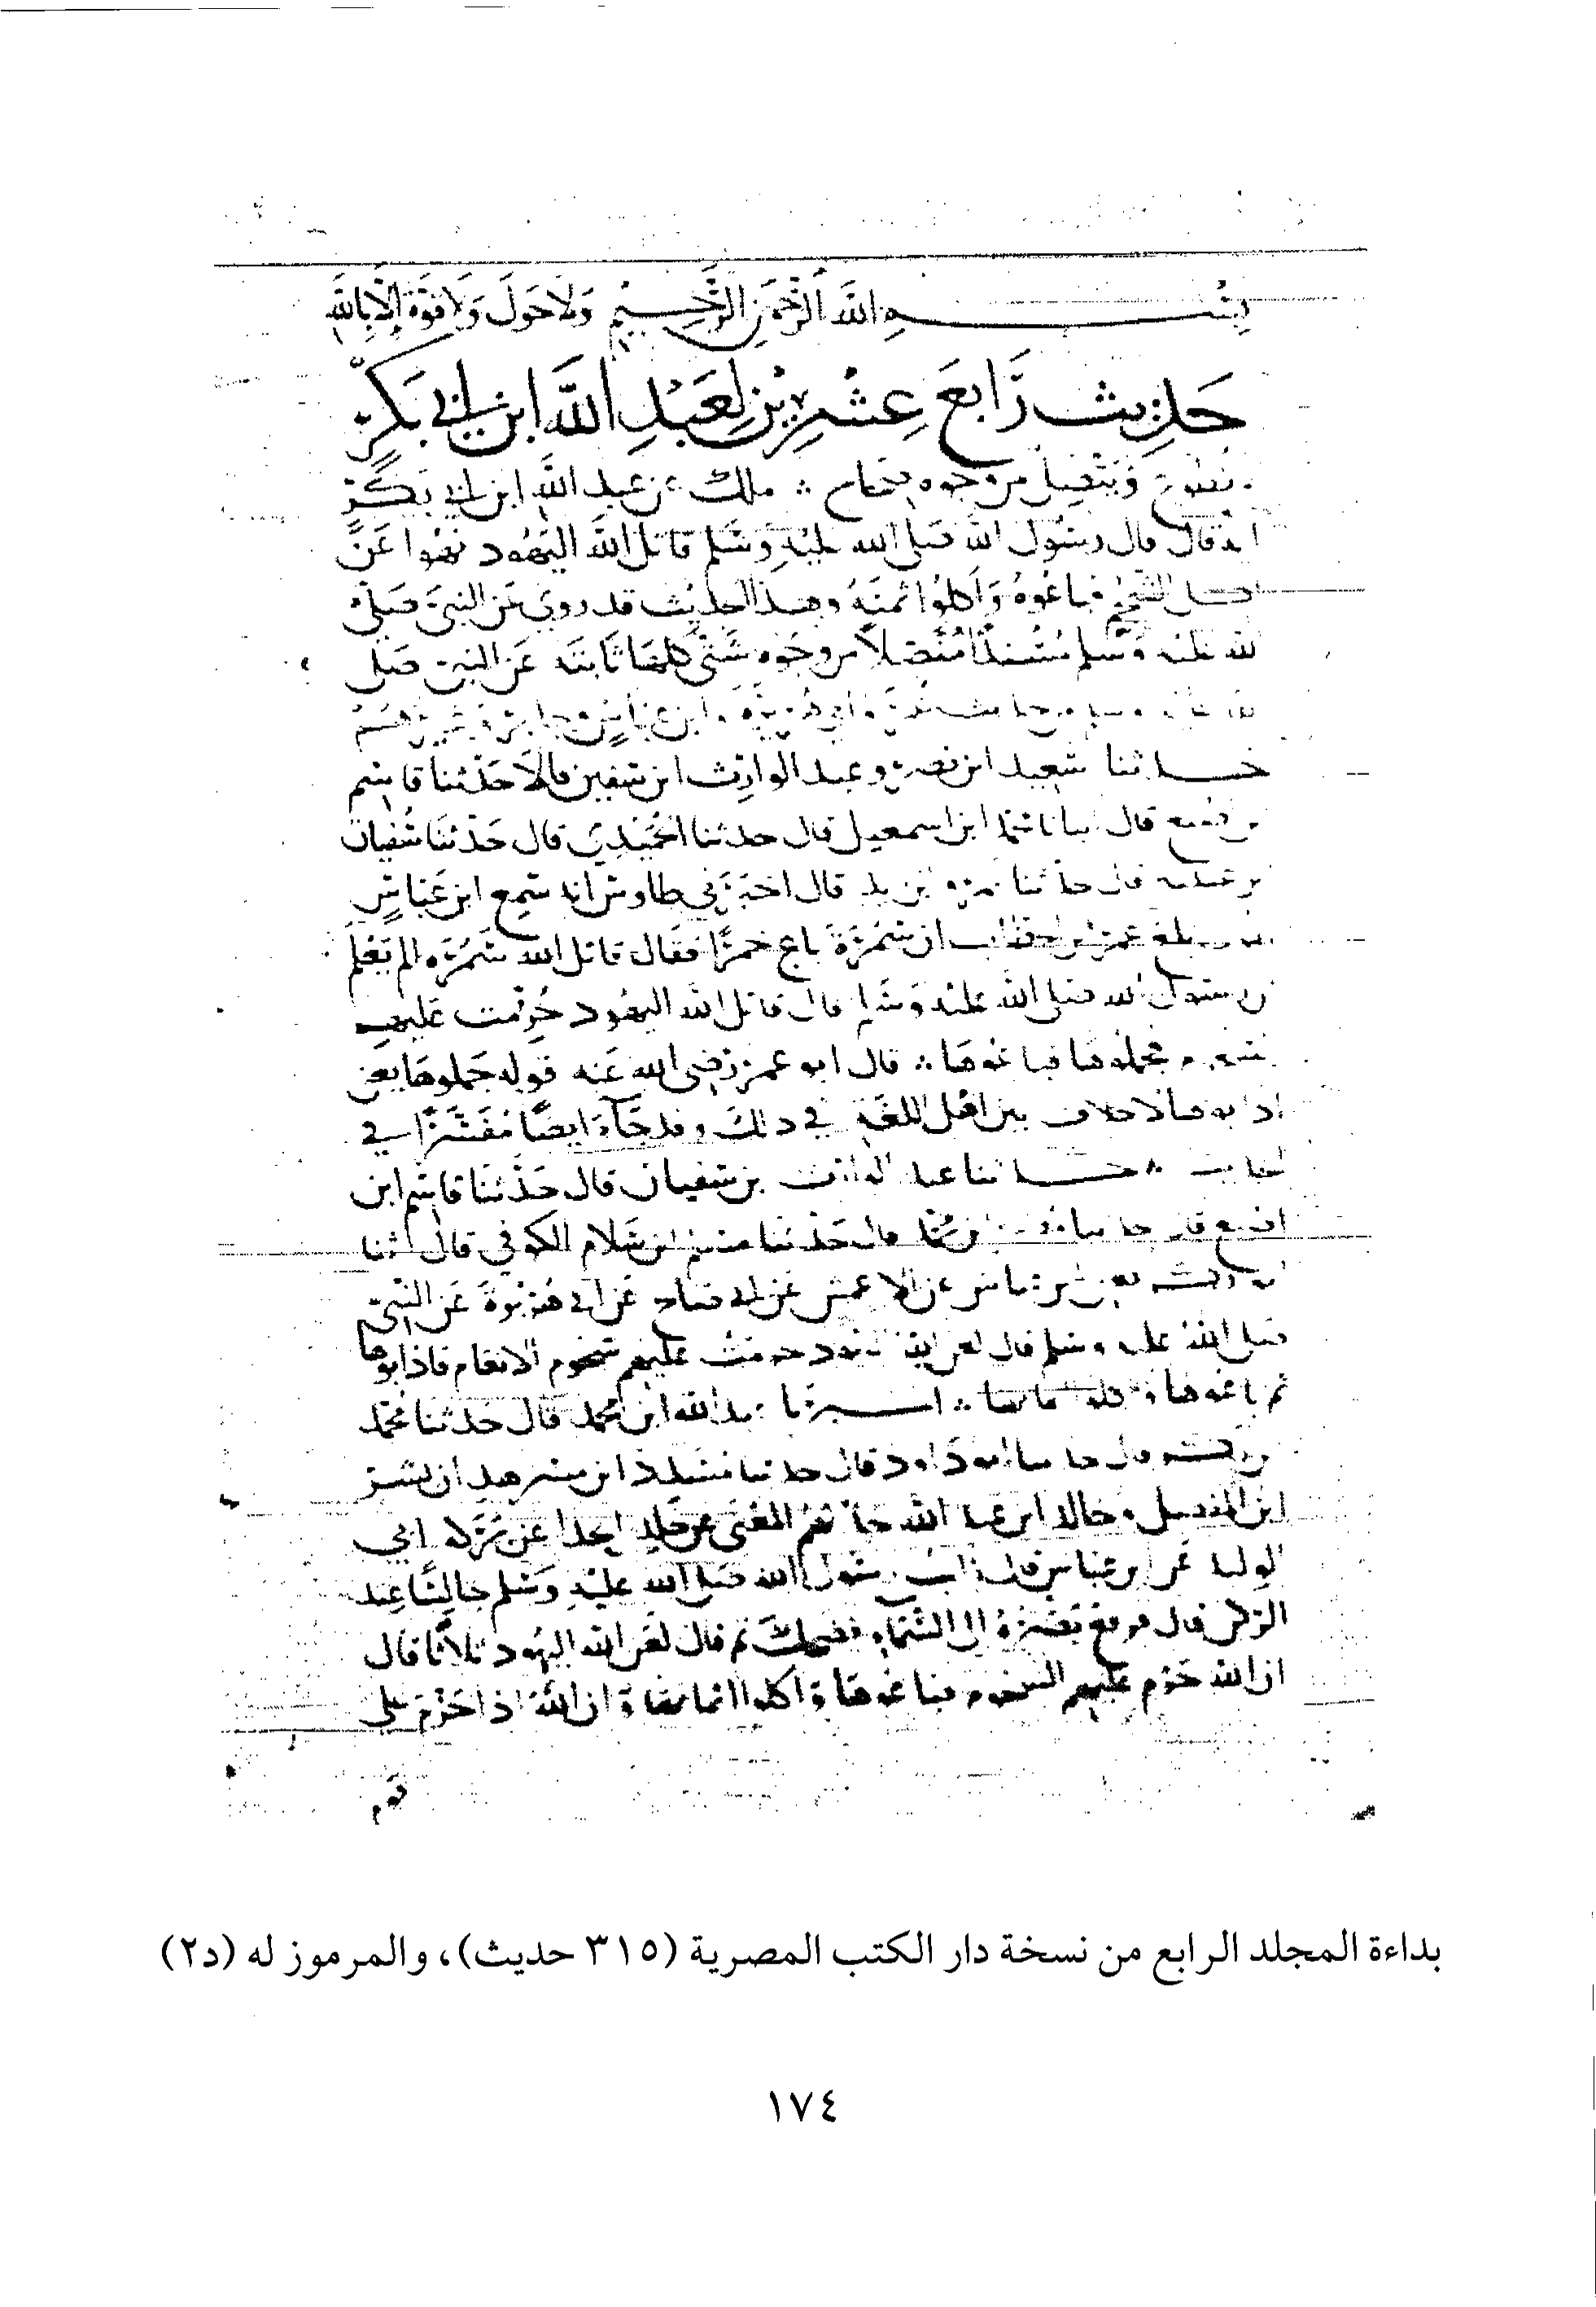 بِسْمِ اللَّهِ الرَّحْمَنِ الرَّحِيمِ وَلَا حَوْلَ وَلَا قُوَّةَ إِلَّا بِاللَّهِ
حَدِيث رَابعَ عِشْرِيْن لِعَبْدِ اللَّه ابن ابي بَكرٍ
وَيَتَّصِل من وجوه صحاح ملك عن عبد الله ابن ابي بَكرٍ
انه قال قال رسُول الله صَلى الله عليْهِ وسَلم قاتل الله اليَهُود نهُوا عَنْ
اكل الشحم فباعُوهُ وَاكلوُا ثمنَهُ وهذا الحديث قد روي عَن النبيّ صَلى
الله عليه وَسلم مُسْنداً مُتَّصِلاً من وجُوه شَتّى كلهَا ثابتَه عَن النبيّ صَلى
الله عليه وسلم من حديث عمر وابي هُرَيْرَة وابن عبَّاسٍ وجابر وغيرهم
حدثنا سَعيد ابن نصر وعبد الوارث ابن سفين قالَا حَدّثنا قاسم
قال حدثنا ابن اسمعيل قال حدثنا الحُمَيْدِيّ قال حَدثنَا سُفيان
قال حدثنا عمرو بن دينار قال اخبَرَني طاوس انه سَمِع ابن عَبَّاسٍ
يقول بلغ عمر بن الخطاب ان سَمُرَةَ باع خمرًا فقَال قاتل الله سَمُرَه الم تعْلمَ
ان رسُول الله صَلى الله عليْه وَسَلم قال قاتل الله اليهُود حُرّمت عَليهم
الشحوم فجملوها فباعُوهَا قال ابو عمر رَضي الله عَنه قوله جَملوهَا يعني
اذابوها لا خلاف بين اهْل اللغَة في ذلكَ وقد جَاءَ ايضًا مُفَسَّرًا في
الحديث حدثنا عبد الوارث بن سفيان قال حَدّثنَا قاسِم ابن
اصبغ قال حدثنا قال حَدثنا ابن سَلام الكوفي قال ثنا
عن الاعمش عَن ابي صَالح عَن ابي هُرَيْرَة عَن النَّبيّ
صَلى اللهُ عليه وسَلم قال لعن الله اليهود حرمَت عَليْهم شحُوم الانعَام فاذابوها
ثم باعُوها واكلوا اثمانها اخبرنا عبد الله ابن محمد قال حَدثنا مُحمّد
بن بكر قال حدثنا ابو دَاود قال حدثنا مُسَدد ابن مسرهد ان بشر
ابن المفضل وخالد ابن عبد الله حدثاهم المعْنَى عن خَالد الحذا عن بَرَكه ابي
الوليد عَن ابن عبَّاس قال رايت رسُول الله صَلى الله عليْه وَسَلم جالسًا عند
الركن قال فرفع بَصَرَهُ الى السَّمَاء فضحك ثم قال لعَن الله اليهُود ثلاثًا قال
ان الله حَرّم عليهم الشحوم فباعُوهَا وَاكلوا اثمانهَا وَان الله اذا حَرَّمَ علي
قوم
بداءة المجلد الرابع من نسخة دار الكتب المصرية (٣١٥ حديث)، والمرموز له (د٢)
١٧٤